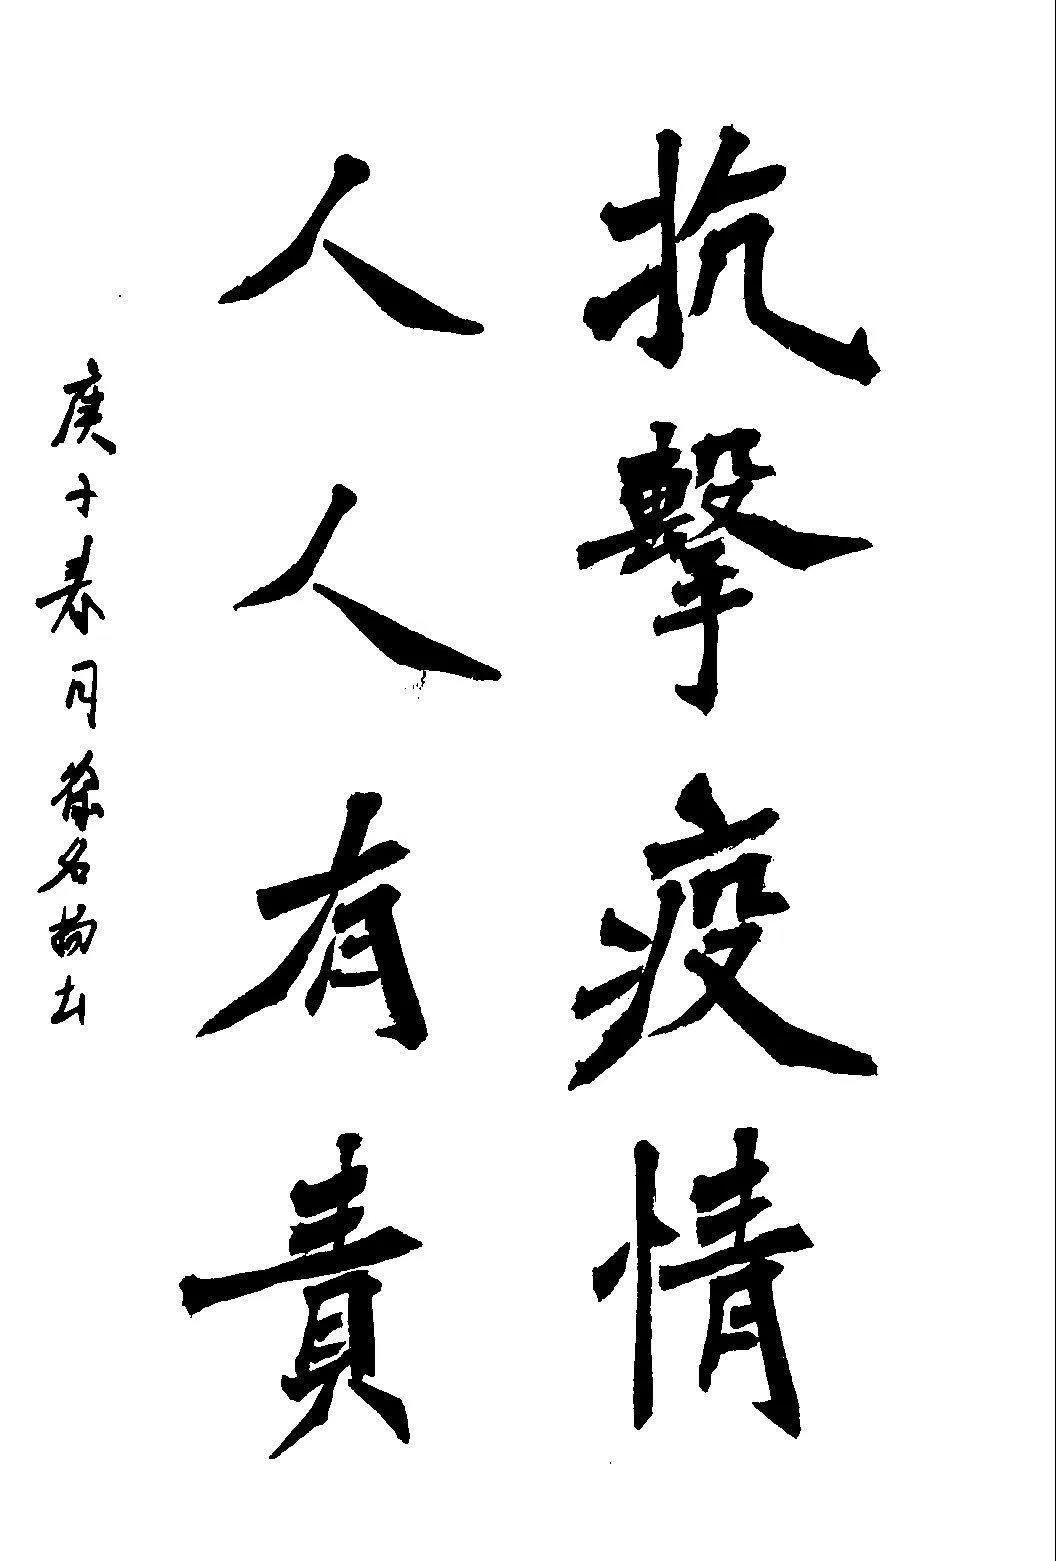 抗擊疫情
人人有責
庚子春月徐名